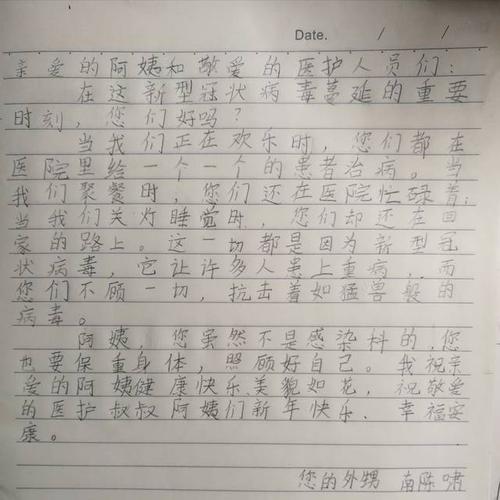 Date. / /
亲爱的阿姨和敬爱的医护人员们：
在这新型冠状病毒蔓延的重要
时刻，您们好吗？
当我们正在欢乐时，您们都在
医院里给一个一个的患者治病。当
我们聚餐时，您们还在医院忙碌着；
当我们关灯睡觉时，您们却还在回
家的路上。这一切都是因为新型冠
状病毒，它让许多人患上重病，而
您们不顾一切，抗击着如猛兽般的
病毒。
阿姨，您虽然不是感染科的，您
也要保重身体，照顾好自己。我祝亲
爱的阿姨健康快乐、美貌如花，祝敬爱
的医护叔叔阿姨们新年快乐、幸福安
康。
您的外甥 南陈啸